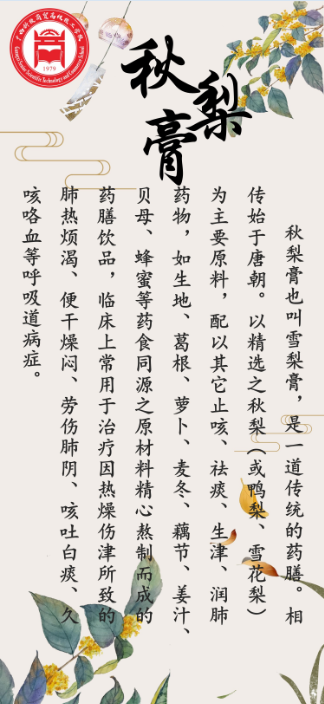 1979
秋梨膏
秋梨膏也叫雪梨膏，是一道传统的药膳。相
传始于唐朝。以精选之秋梨（或鸭梨、雪花梨）
为主要原料，配以其它止咳、祛痰、生津、润肺
药物，如生地、葛根、萝卜、麦冬、藕节、姜汁、
贝母、蜂蜜等药食同源之原材料精心熬制而成的
药膳饮品，临床上常用于治疗因热燥伤津所致的
肺热烦渴、便干燥闷、劳伤肺阴、咳吐白痰、久
咳咯血等呼吸道病症。